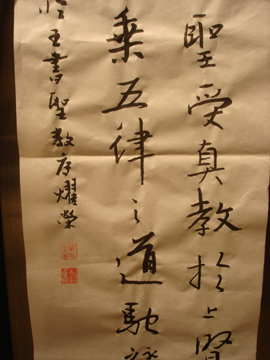 聖受真教於上賢
乘五律之道馳
王書聖教序耀榮